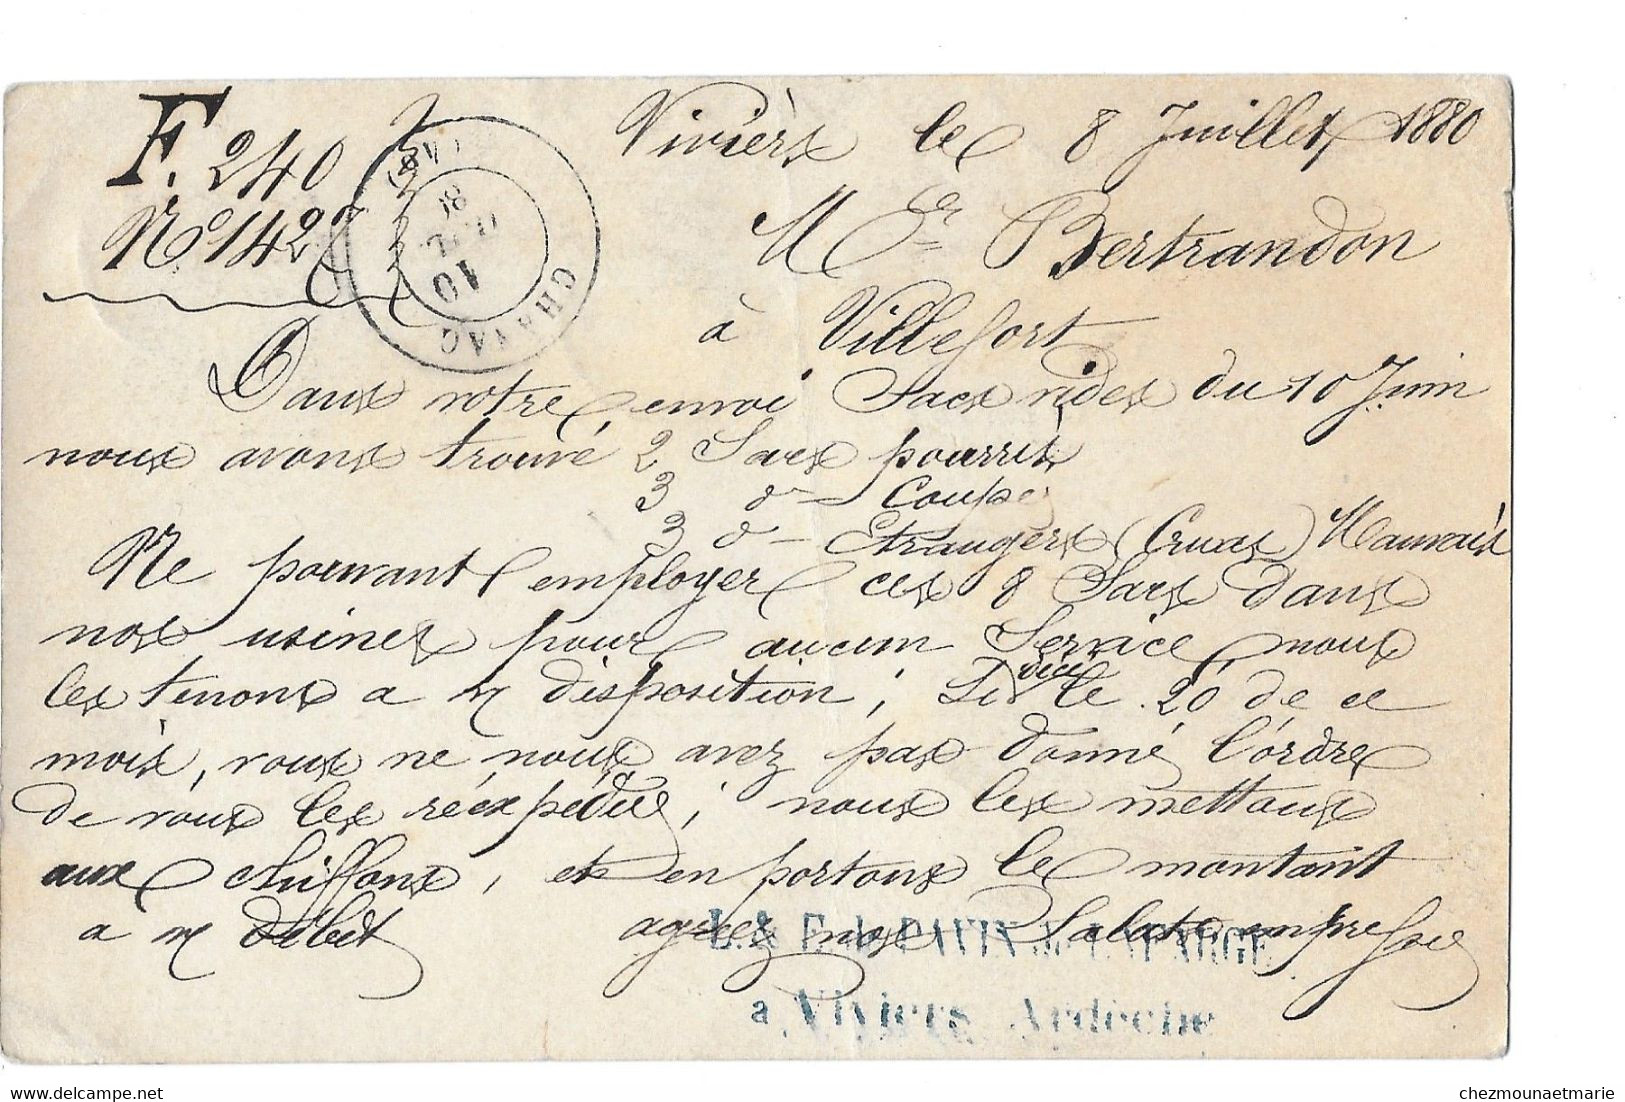 F. 240
N° 1427
Viviers le 8 Juillet 1880
Mr Bertrandon
à Villefort
CHAYLAC
10
JUIL
Dans votre envoi Sacs vides du 10 Juin
nous avons trouvé 2 Sacs pourris
3 do — Coupés
3 do — Etrangers (Cruas) Mauvais
Ne pouvant employer ces 8 Sacs dans
nos usines pour aucun Service, nous
les tenons a v/ disposition; Si d'ici le 20 de ce
mois, vous ne nous avez pas donné l'ordre
de vous les réexpédier; nous les mettons
aux chiffons, et en portons le montant
a v/ débit agréez nos Salutn empressées
L. & E. de PAVIN de LAFARGE
a Viviers Ardèche
chezmounaetmarie